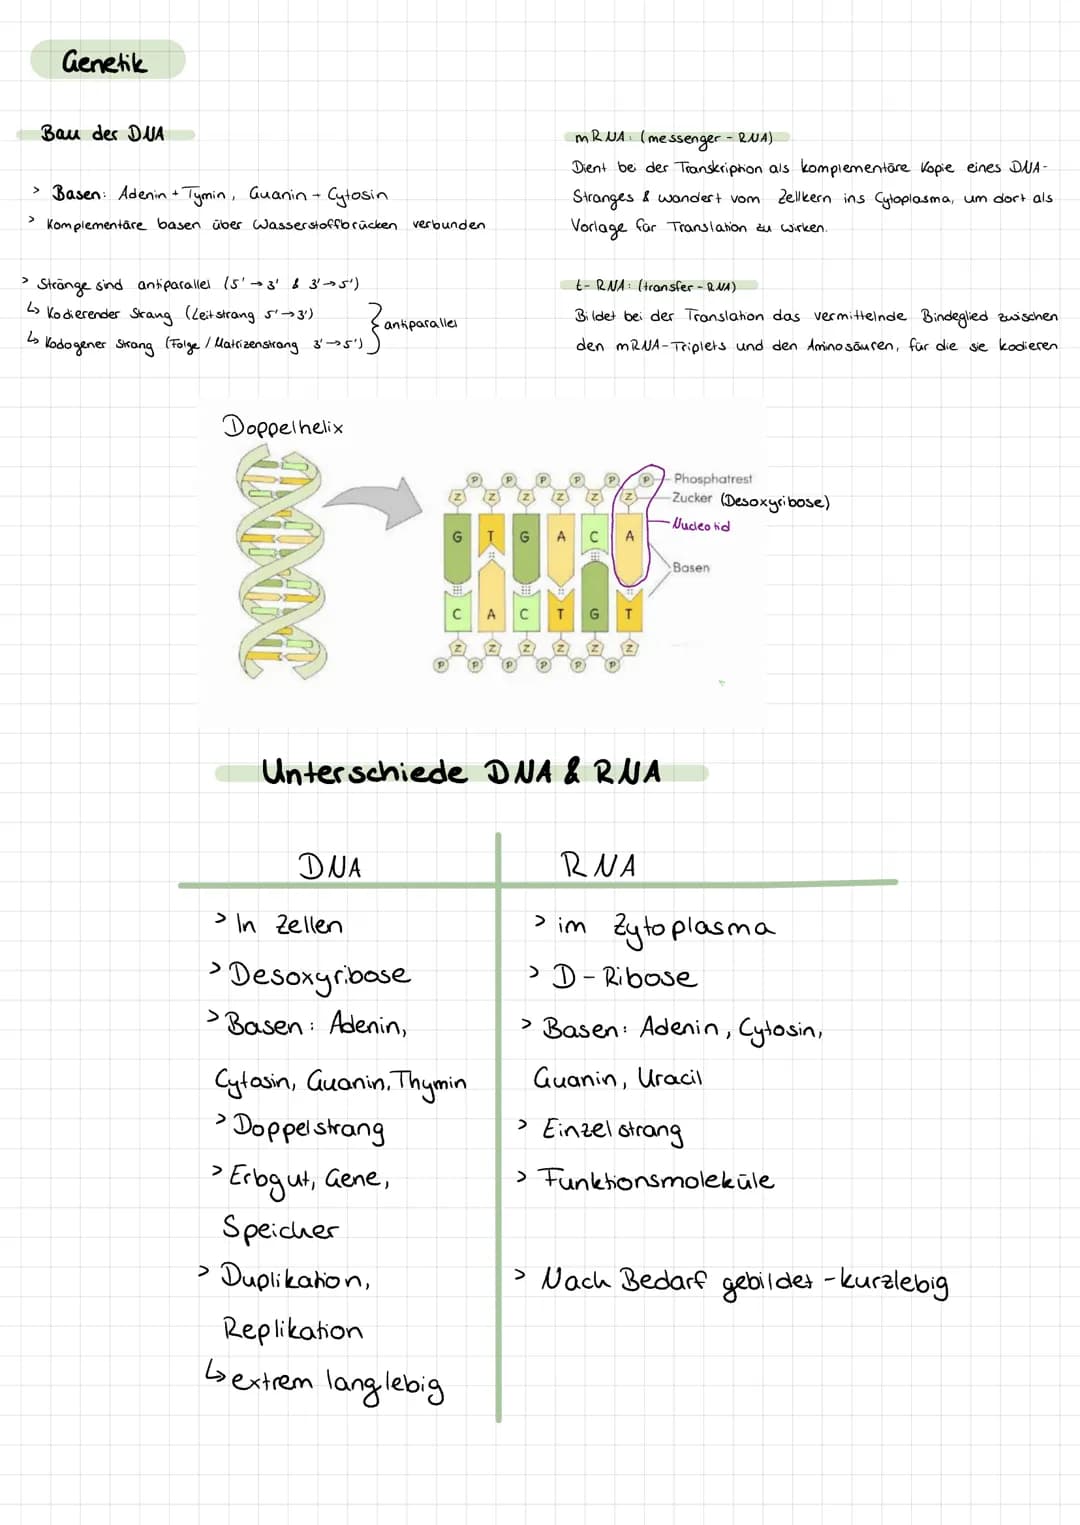 Genetik
Bau der DNA
> Basen: Adenin + Tymin, Guanin + Cytosin
> Komplementäre basen über Wasserstoffbrücken verbunden
> Stränge sind antiparallel (5'→3' & 3'→5')
↳ Kodierender Strang (Leitstrang 5'→3')
↳ Kodogener Strang (Folge / Matrizenstrang 3'→5')
} antiparallel
mRNA: (messenger - RNA)
Dient bei der Transkription als komplementäre Kopie eines DNA-
Stranges & wandert vom Zellkern ins Cytoplasma, um dort als
Vorlage für Translation zu wirken.
t- RNA: (transfer - RNA)
Bildet bei der Translation das vermittelnde Bindeglied zwischen
den mRNA-Triplets und den Aminosäuren, für die sie kodieren
Doppelhelix
P P P P P P
Z Z Z Z Z Z
G T G A C A
C A C T G T
Z Z Z Z Z Z
P P P P P P
Phosphatrest
Zucker (Desoxyribose)
Nucleotid
Basen
Unterschiede DNA & RNA
DNA
> In Zellen
> Desoxyribose
> Basen: Adenin,
Cytosin, Guanin, Thymin
> Doppelstrang
> Erbgut, Gene,
Speicher
> Duplikation,
Replikation
↳ extrem langlebig
RNA
> im Zytoplasma
> D - Ribose
> Basen: Adenin, Cytosin,
Guanin, Uracil
> Einzelstrang
> Funktionsmoleküle
> Nach Bedarf gebildet - kurzlebig